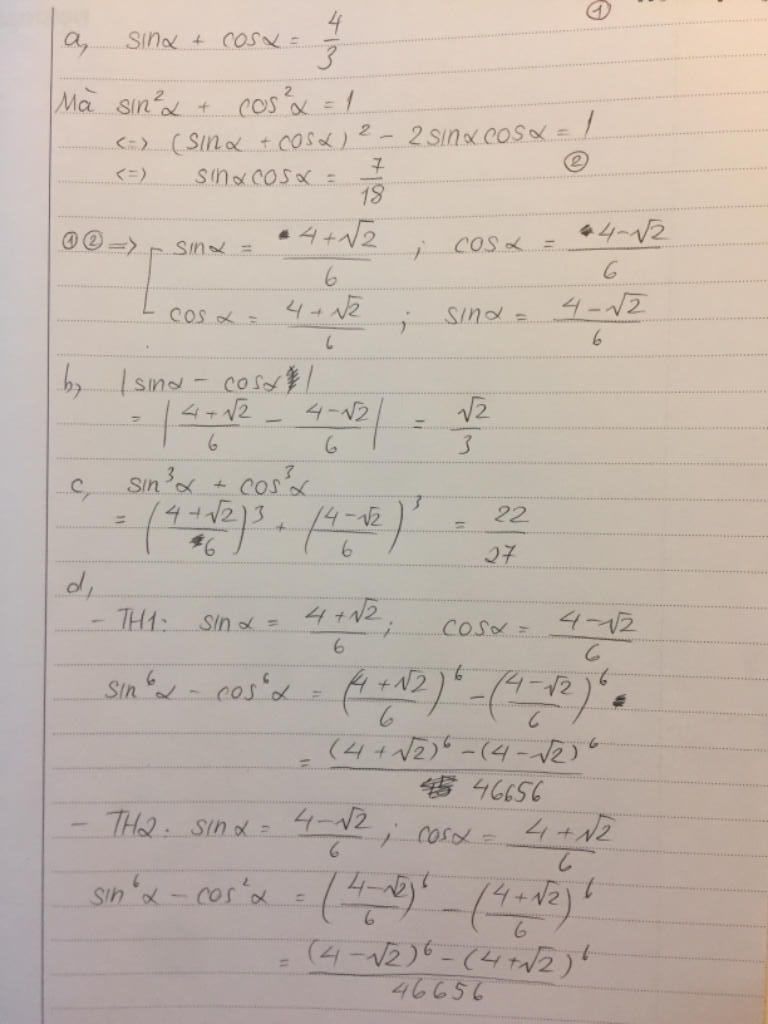 ①
a, sinα + cosα = 4/3
Mà sin²α + cos²α = 1
<=> (sinα + cosα)² - 2sinαcosα = 1
<=> sinαcosα = 7/18 ②
①② => [ sinα = (4+√2)/6 ; cosα = (4-√2)/6
cosα = (4+√2)/6 ; sinα = (4-√2)/6
b, |sinα - cosα|
= |(4+√2)/6 - (4-√2)/6| = √2/3
c, sin³α + cos³α
= ((4+√2)/6)³ + ((4-√2)/6)³ = 22/27
d,
- TH1: sinα = (4+√2)/6 ; cosα = (4-√2)/6
sin⁶α - cos⁶α = ((4+√2)/6)⁶ - ((4-√2)/6)⁶
= ((4+√2)⁶ - (4-√2)⁶)/46656
- TH2: sinα = (4-√2)/6 ; cosα = (4+√2)/6
sin⁶α - cos²α = ((4-√2)/6)⁶ - ((4+√2)/6)⁶
= ((4-√2)⁶ - (4+√2)⁶)/46656